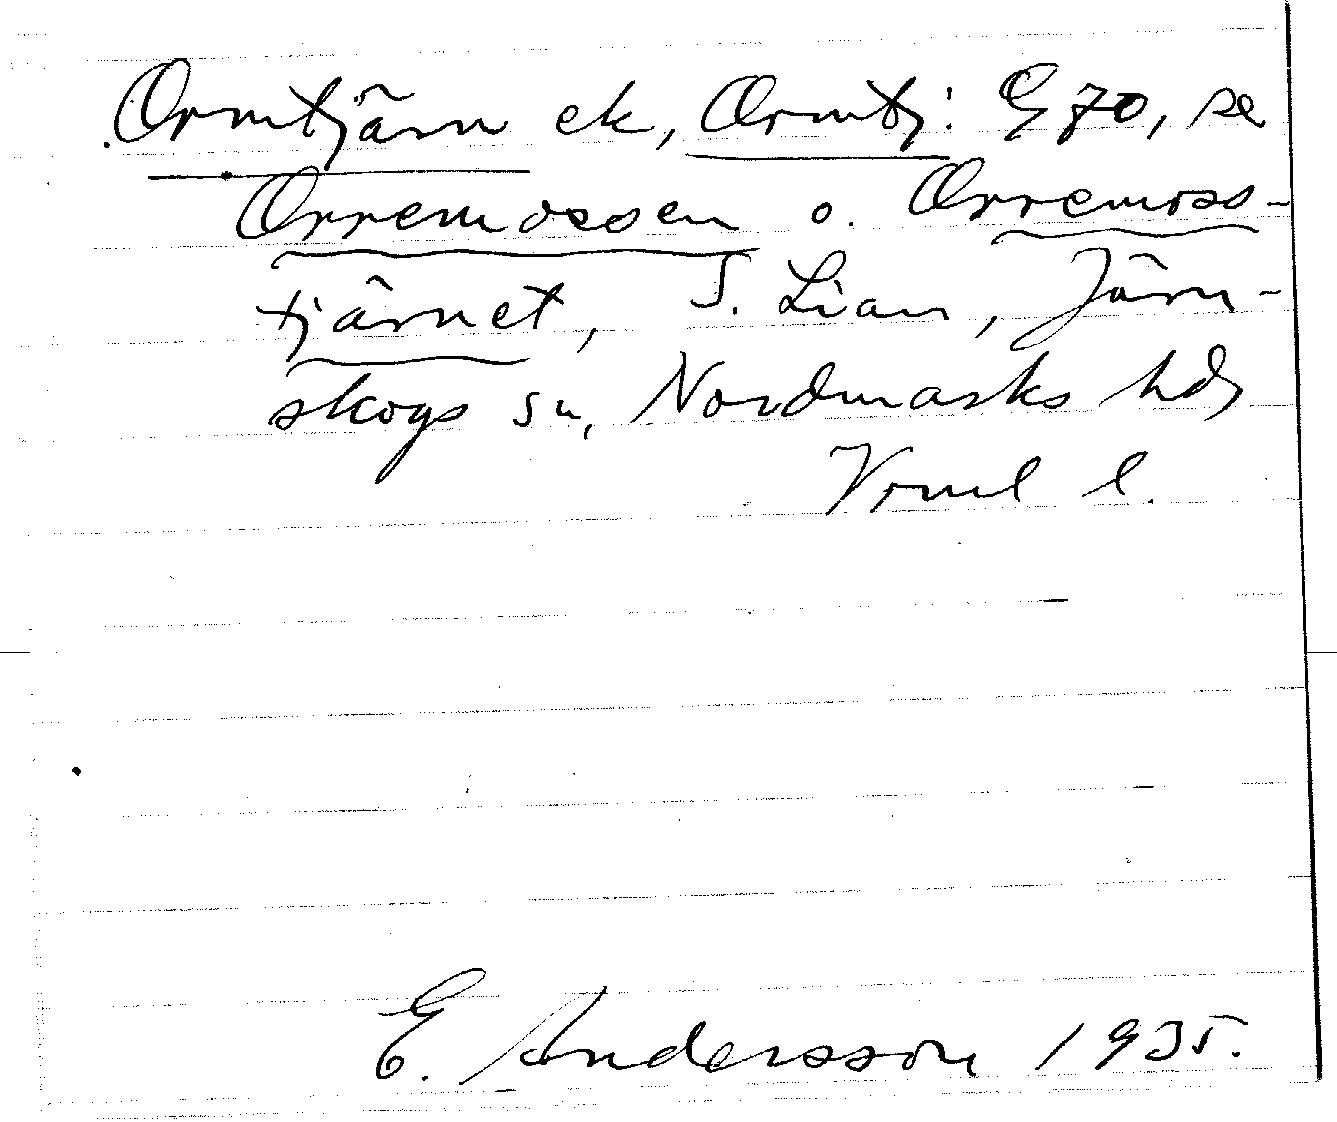 Ormtjärn ek, Ormtj: G 70, se
Orremossen o. Orremoss-
tjärnet, S. Lian, Järn-
skogs sn, Nordmarks hd,
Vrml l.
E. Andersson 1935.